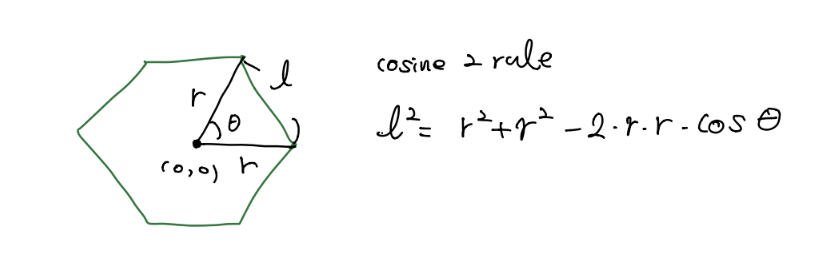 l
r
θ
(0,0)
r
cosine 2 rule
l² = r² + r² - 2·r·r·cos θ